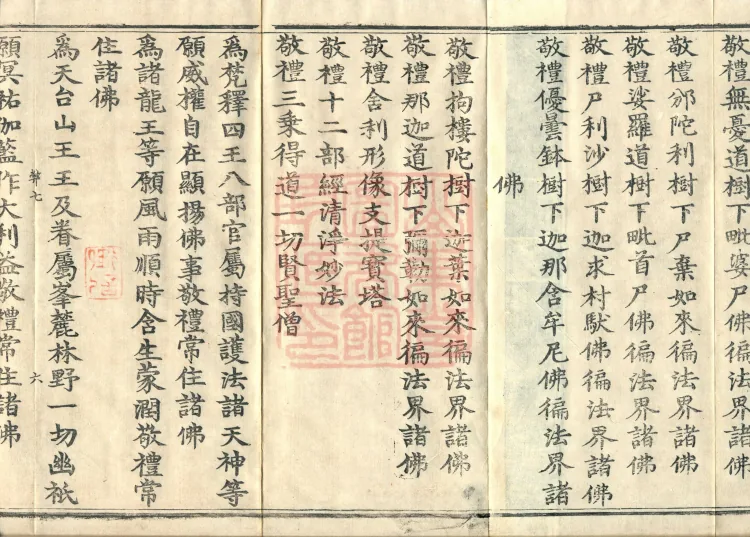 敬禮無憂道樹下毗婆尸佛徧法界諸佛
敬禮邠陀利樹下尸棄如來徧法界諸佛
敬禮娑羅道樹下毗首尸佛徧法界諸佛
敬禮尸利沙樹下迦求村馱佛徧法界諸佛
敬禮優曇鉢樹下迦那含牟尼佛徧法界諸
佛
敬禮拘樓陀樹下迦葉如來徧法界諸佛
敬禮那迦道樹下彌勒如來徧法界諸佛
敬禮舍利形像支提寶塔
敬禮十二部經清淨妙法
敬禮三乘得道一切賢聖僧
爲梵釋四王八部官屬持國護法諸天神等
願威權自在顯揚佛事敬禮常住諸佛
爲諸龍王等願風雨順時含生蒙潤敬禮常
住諸佛
爲天台山王王及眷屬峯麓林野一切幽祇
弊七 六
願冥祐伽藍作大利益敬禮常住諸佛